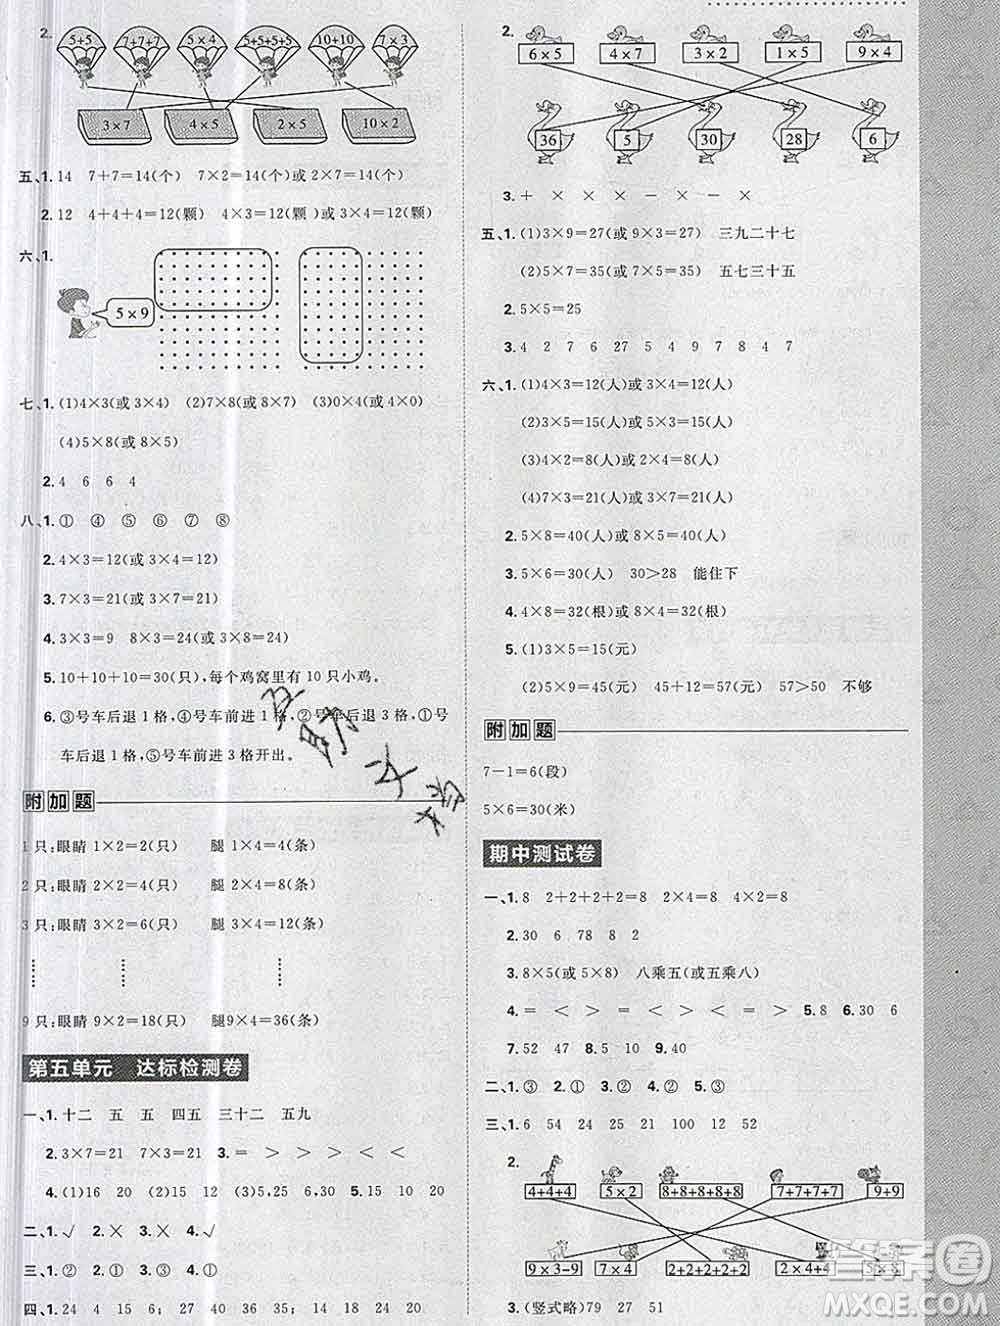 2.
5+5 7+7+7 5×4 5+5+5+5 10+10 7×3
3×7 4×5 2×5 10×2
五、1. 14 7+7=14(个) 7×2=14(个)或 2×7=14(个)
2. 12 4+4+4=12(颗) 4×3=12(颗)或 3×4=12(颗)
六、1.
5×9
七、1. (1)4×3(或 3×4) (2)7×8(或 8×7) (3)0×4(或 4×0)
(4)5×8(或 8×5)
2. 4 6 6 4
八、1. ① ④ ⑤ ⑦ ⑧
2. 4×3=12(或 3×4=12)
3. 7×3=21(或 3×7=21)
4. 3×3=9 8×3=24(或 3×8=24)
5. 10+10+10=30,每个鸡窝里有 10 只小鸡。
6. ③号车后退 1 格,④号车前进 1 格,②号车后退 3 格,①号
车后退 1 格,⑤号车前进 3 格开出。
附加题
1 只:眼睛 1×2=2(只) 腿 1×4=4(条)
2 只:眼睛 2×2=4(只) 腿 2×4=8(条)
3 只:眼睛 3×2=6(只) 腿 3×4=12(条)
9 只:眼睛 9×2=18(只) 腿9×4=36(条)
第五单元 达标检测卷
一、1. 十二 五 五 四五 三十二 五九
2. 3×7=21 7×3=21 3. = > > > < <
4. (1)16 20 (2)15 12 (3)5,25 6,30 5. 15 10 20
二、1. √ 2. × 3. × 4. √
三、1. ② 2. ① 3. ② 4. ①
四、1. 24 4 15 16 35; 24 15 16 20 20
2.
6×5 4×7 3×2 1×5 9×4
36 5 30 28 6
3. + × × − − ×
五、1. (1)3×9=27(或 9×3=27) 三九二十七
(2)5×7=35(或 7×5=35) 五七三十五
2. 5×5=25
3. 4 2 7 6 27 5 4 9 7 8 4 7
六、1. (1)4×3=12(人)或 3×4=12(人)
(2)3×5=15(人)或 5×3=15(人)
(3)4×2=8(人)或 2×4=8(人)
(4)7×3=21(人)或 3×7=21(人)
2. 5×8=40(人)或 8×5=40(人)
3. 5×6=30(人) 30>28 能住下
4. 4×8=32(根)或 8×4=32(根)
5. (1)3×5=15(元)
(2)5×9=45(元) 45+12=57(元) 57>50 不够
附加题
7−1=6(段)
5×6=30(米)
期中测试卷
一、1. 8 2+2+2+2=8 2×4=8 4×2=8
2. 30 6 78 8 2
3. 8×5(或 5×8) 八乘五(或五乘八)
4. = < > < = > 5. 8 6. 40 6
7. 52 47 8. 30 9. 40
二、1. ③ 2. ① 3. ② 4. ① 5. ②
三、1. 6 54 24 25 21 100 12 52
2.
4+4+4 5×2 8+8+8+8+8 7+7+7+7 9+9
9×3−9 7×4 2+2+2+2+2 2×4+4 8×5
3. (竖式略)79 27 51
答案卷
MXQE.COM